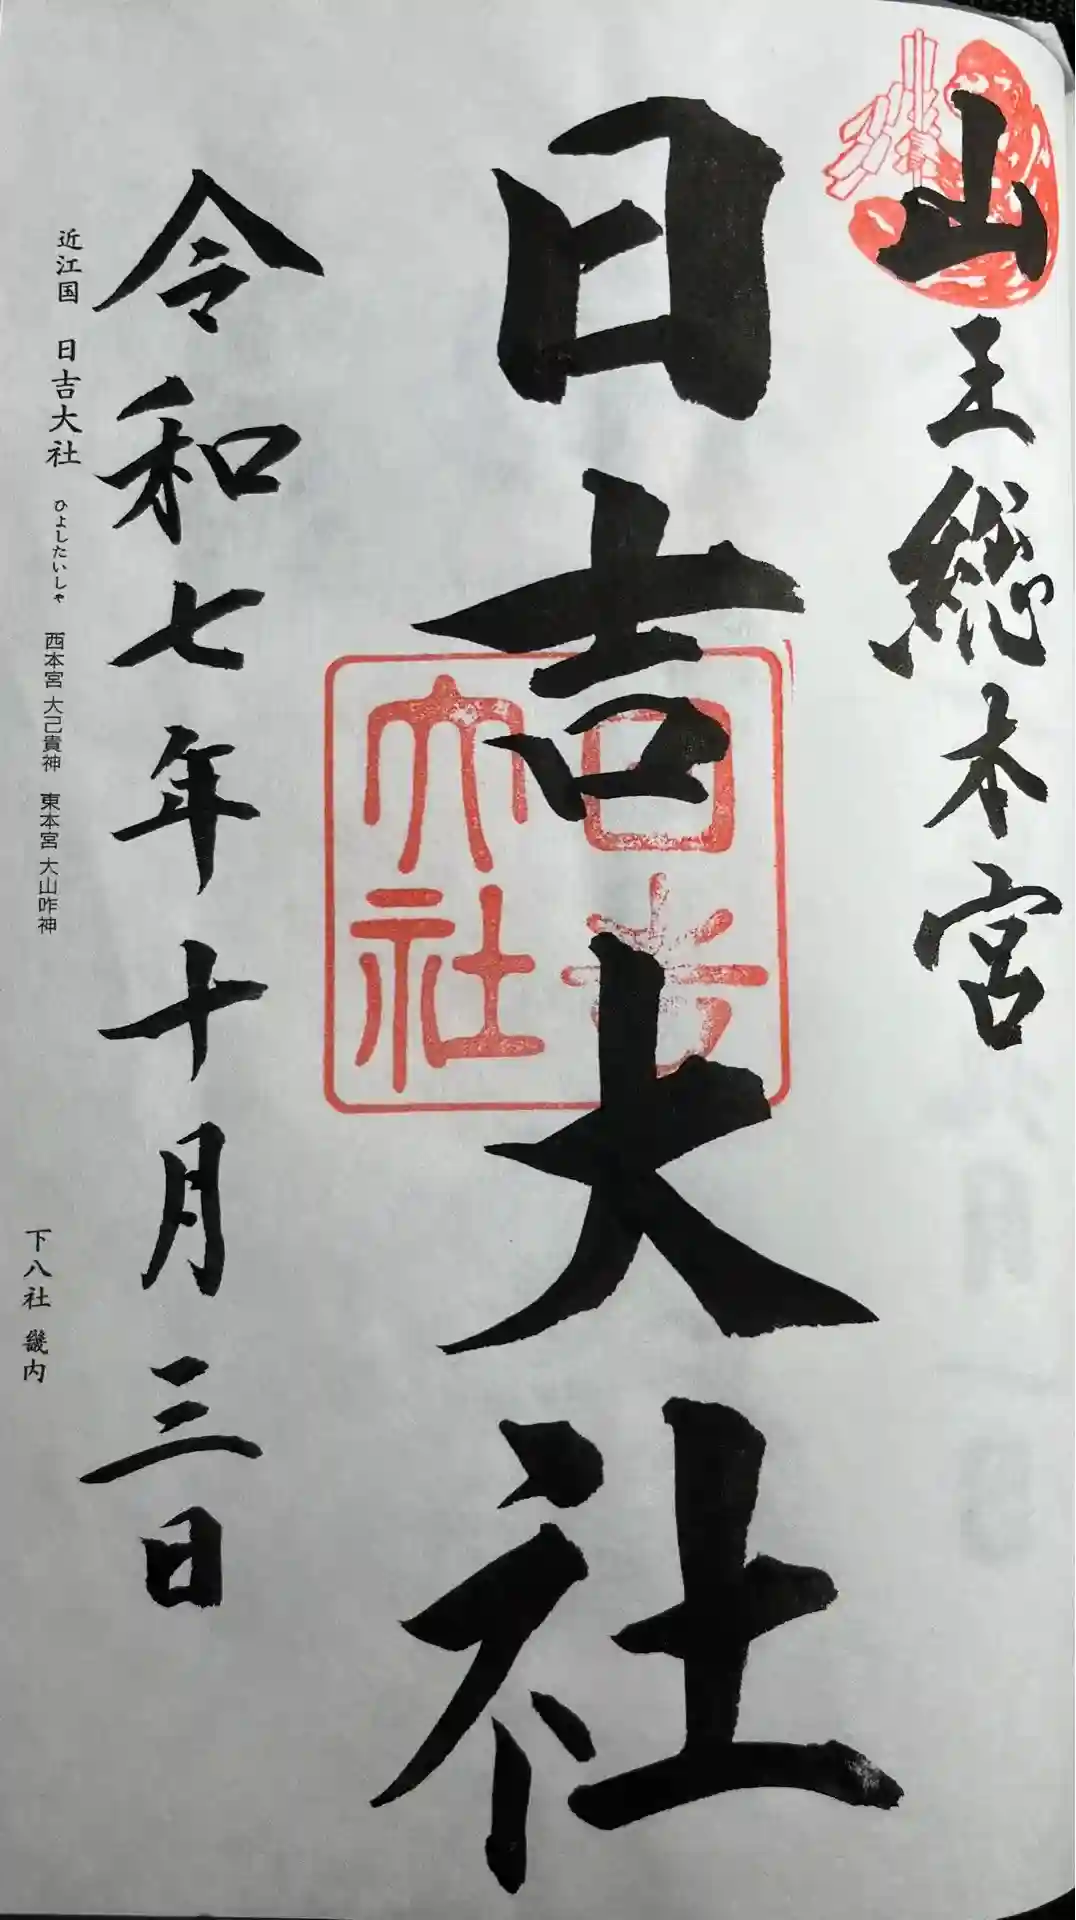 山王総本宮
日吉大社
日吉
大社
令和七年十月三日
近江国 日吉大社 ひよしたいしゃ 西本宮 大己貴神 東本宮 大山咋神
下八社 畿内